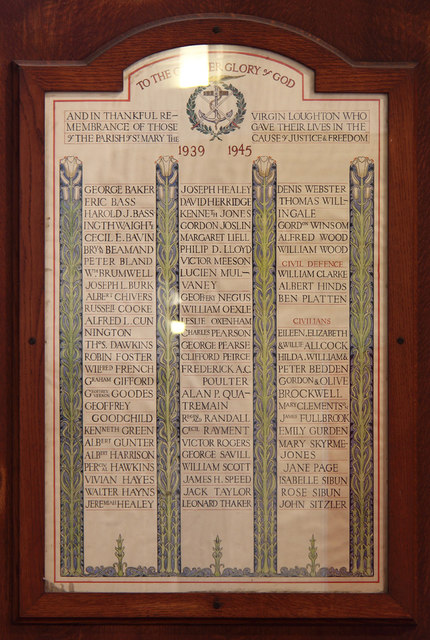 TO THE GREATER GLORY of GOD
AND IN THANKFUL RE-
MEMBRANCE OF THOSE
of THE PARISH of ST MARY THE
VIRGIN LOUGHTON WHO
GAVE THEIR LIVES IN THE
CAUSE of JUSTICE & FREEDOM
1939 1945
GEORGE BAKER
ERIC BASS
HAROLD J. BASS
CECIL E. BAVIN
BEAMAND
PETER BLAND
Wm BRUMWELL
JOSEPH L. BURK
ALBERT CHIVERS
RUSSELL COOKE
ALFRED J. CUN
NINGTON
THOS. DAWKINS
ROBIN FOSTER
WILFRED FRENCH
GRAHAM GIFFORD
GOODES
GEOFFREY
GOODCHILD
KENNETH GREEN
ALBERT GUNTER
ALBERT HARRISON
HAWKINS
VIVIAN HAYES
WALTER HAYNS
JEREMIAH HEALEY
JOSEPH HEALEY
DAVID HERRIDGE
KENNETH JONES
GORDON JOSLIN
MARGARET LIELL
PHILIP D. LLOYD
VICTOR MEESON
LUCIEN MUL-
VANEY
GEOFFERY NEGUS
WILLIAM OEXLE
LESLIE OXENHAM
CHARLES PEARSON
GEORGE PEARSE
CLIFFORD PEIRCE
FREDERICK A.C.
POULTER
ALAN P. QUA-
TREMAIN
RANDALL
CECIL RAYMENT
VICTOR ROGERS
GEORGE SAVILL
WILLIAM SCOTT
JAMES H. SPEED
JACK TAYLOR
LEONARD THAKER
DENIS WEBSTER
THOMAS WILL-
INGALE
GORDON WINSOM
ALFRED WOOD
WILLIAM WOOD
CIVIL DEFENCE
WILLIAM CLARKE
ALBERT HINDS
BEN PLATTEN
CIVILIANS
EILEEN, ELIZABETH
& WILLIE ALLCOCK
HILDA, WILLIAM &
PETER BEDDEN
GORDON & OLIVE
BROCKWELL
MARY CLEMENTS
JAMES FULLBROOK
EMILY GURDEN
MARY SKYRME-
JONES
JANE PAGE
ISABELLE SIBUN
ROSE SIBUN
JOHN SITZLER